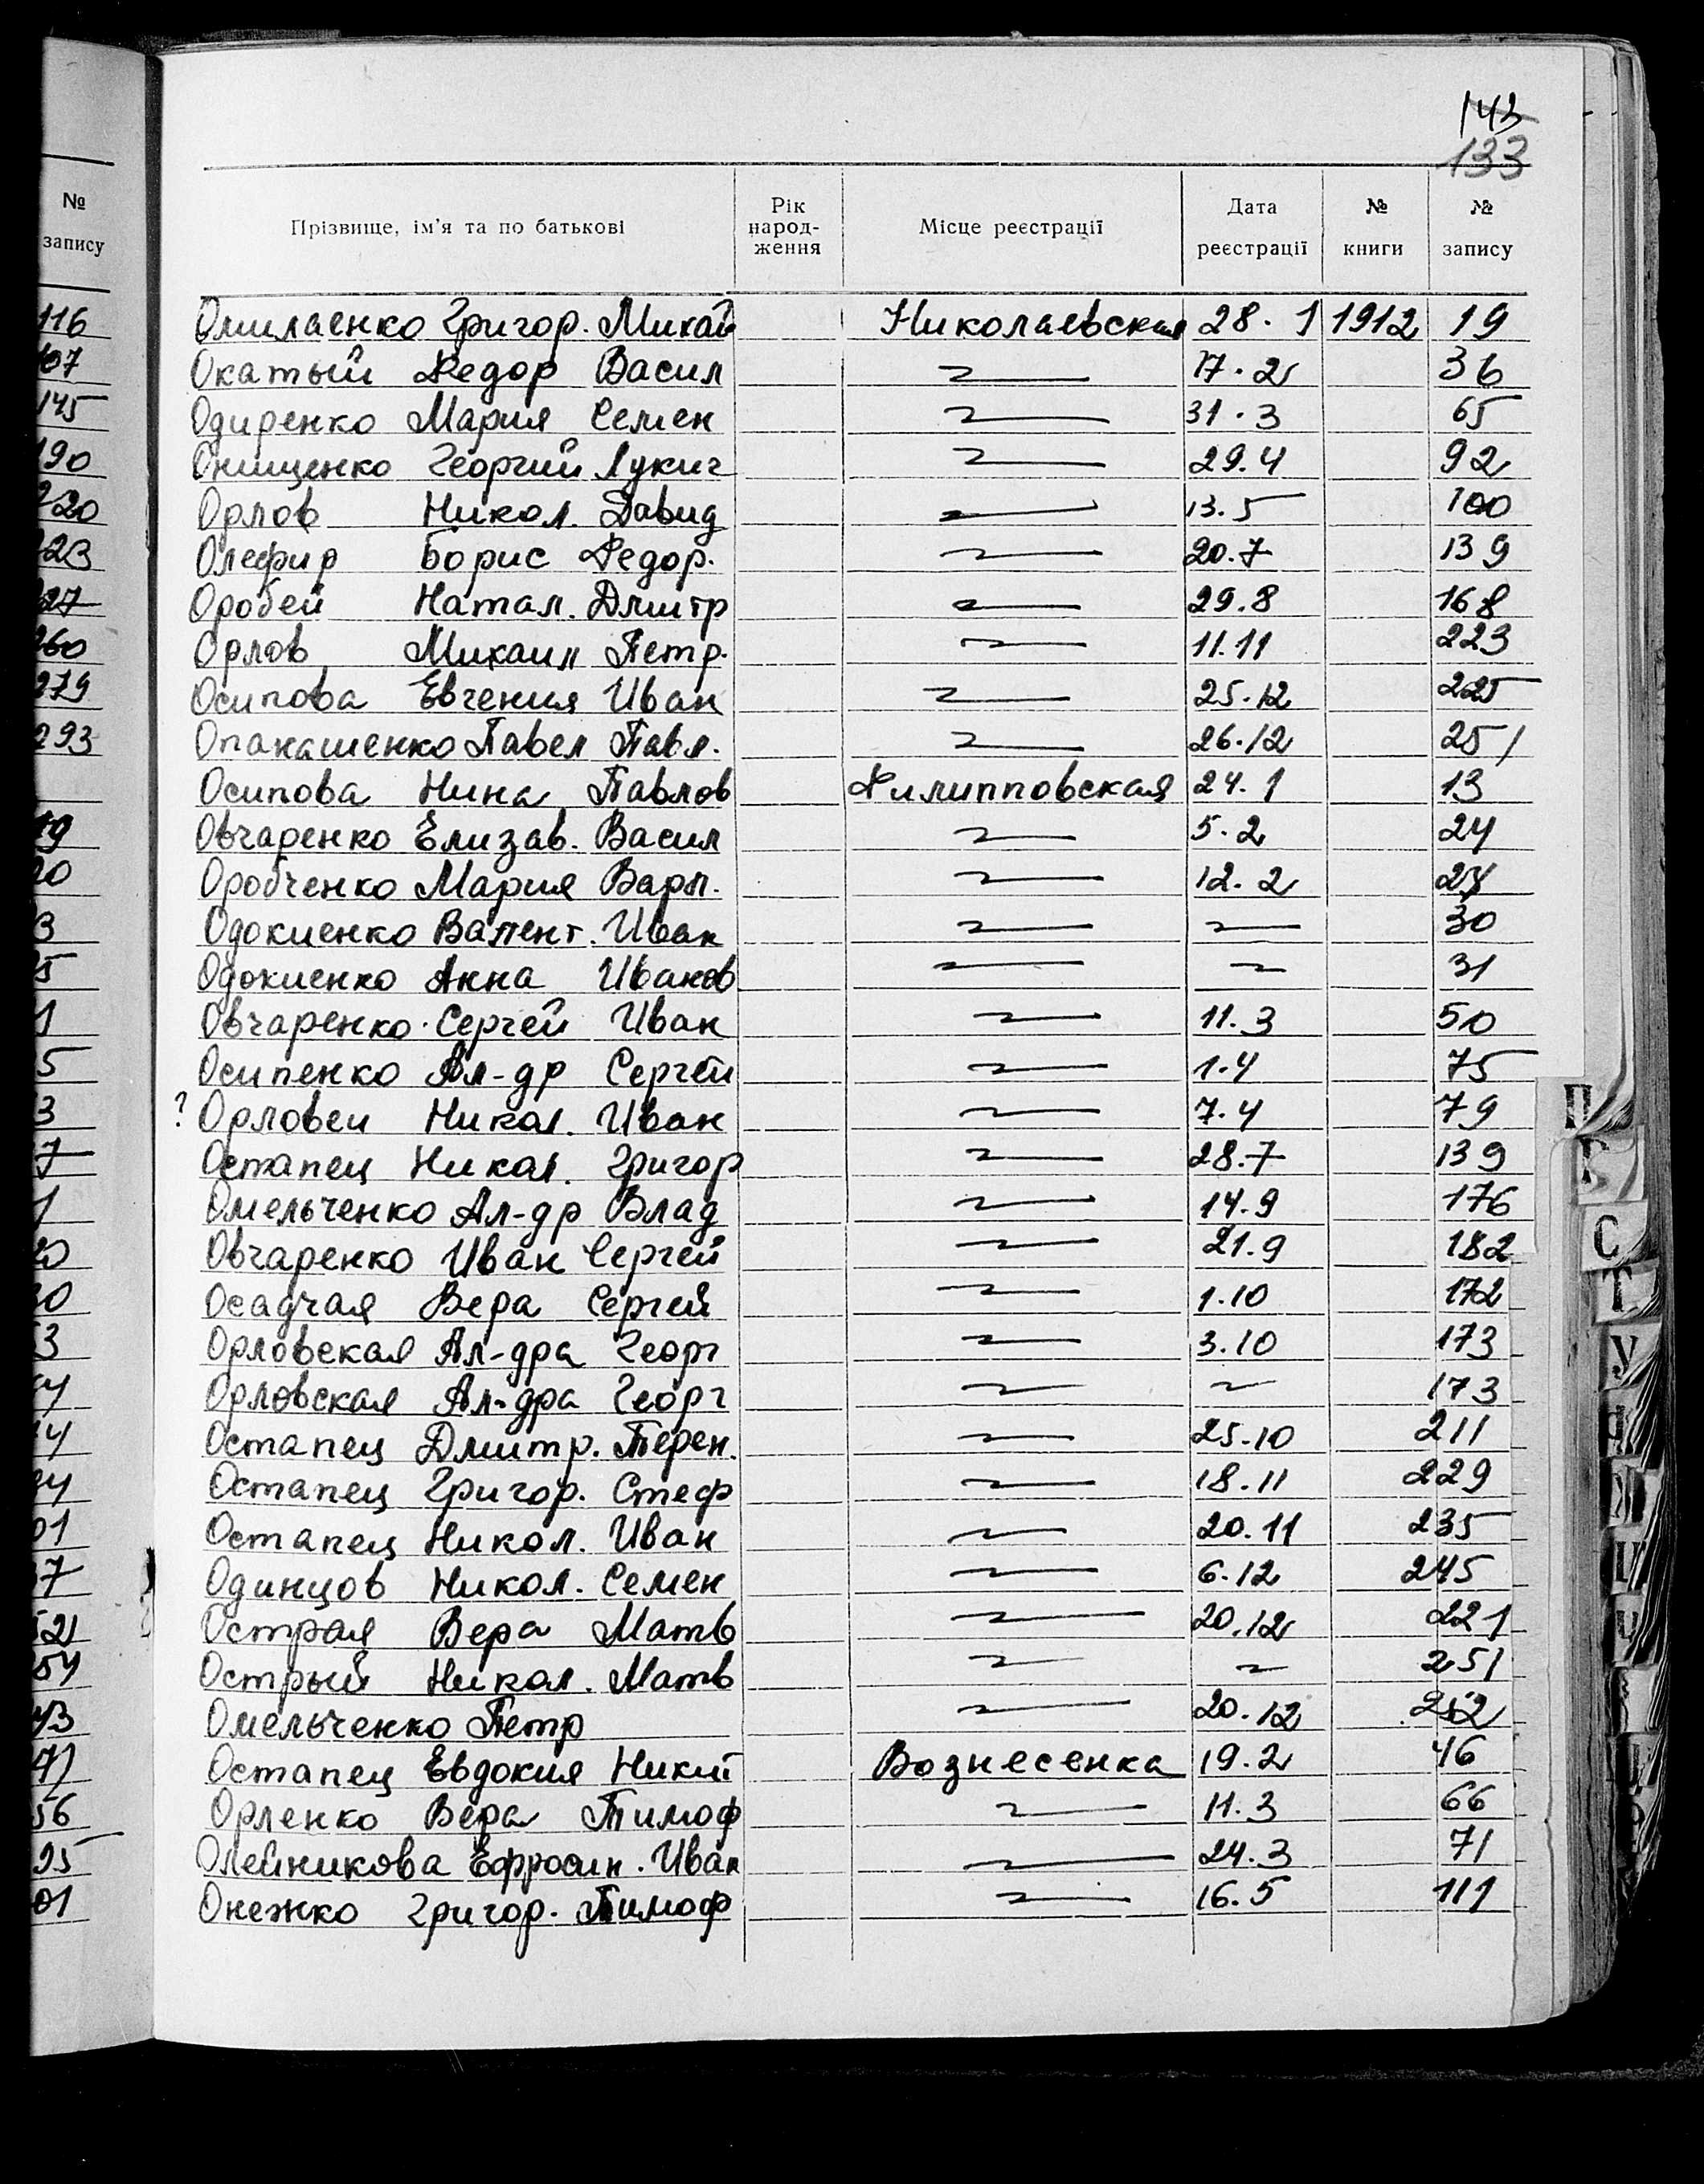 143
133
№ запису
Прізвище, ім'я та по батькові Рік народ-ження Місце реєстрації Дата реєстрації № книги № запису
116
107
145
190
220
223
227
260
279
293
Григор. Михай Николаевская 28. 1 1912 19
Окатый Федор Васил 17. 2 36
Одиренко Мария Семен 31. 3 65
Онищенко Георгий Лукич 29. 4 92
Орлов Никол. Давид 13. 5 100
Олефир Борис Федор. 20. 7 139
Оробей Натал. Дмитр 29. 8 168
Орлов Михаил Петр. 11. 11 223
Осипова Евгения Иван 25. 12 225
Опанашенко Павел Павл. 26. 12 251
Осипова Нина Павлов Филипповская 24. 1 13
Овчаренко Елизав. Васил 5. 2 24
Оробченко Мария Варл. 12. 2
Одокиенко Валент. Иван 30
Одокиенко Анна Иванов 31
Овчаренко Сергей Иван 11. 3 50
Осипенко Ал-др Сергей 1. 4 75
? Орловеи Никол. Иван 7. 4 79
Остапец Никол. Григор 28. 7 139
Омельченко Ал-др Влад 14. 9 176
Овчаренко Иван Сергей 21. 9 182
Осадчая Вера Сергей 1. 10 172
Орловская Ал-дра Георг 3. 10 173
Орловская Ал-дра Георг 173
Остапец Дмитр. Терен. 25. 10 211
Остапец Григор. Стеф 18. 11 229
Остапец Никол. Иван 20. 11 235
Одинцов Никол. Семен 6. 12 245
Острая Вера Матв 20. 12 221
Острый Никол. Матв 251
Омельченко Петр 20. 12
Остапец Евдокия Никит Вознесенка 19. 2 46
Орленко Вера Тимоф 11. 3 66
Олейникова Ефросин. Иван 24. 3 71
Онежко Григор. Тимоф 16. 5 111
П
Р
С
Т
У